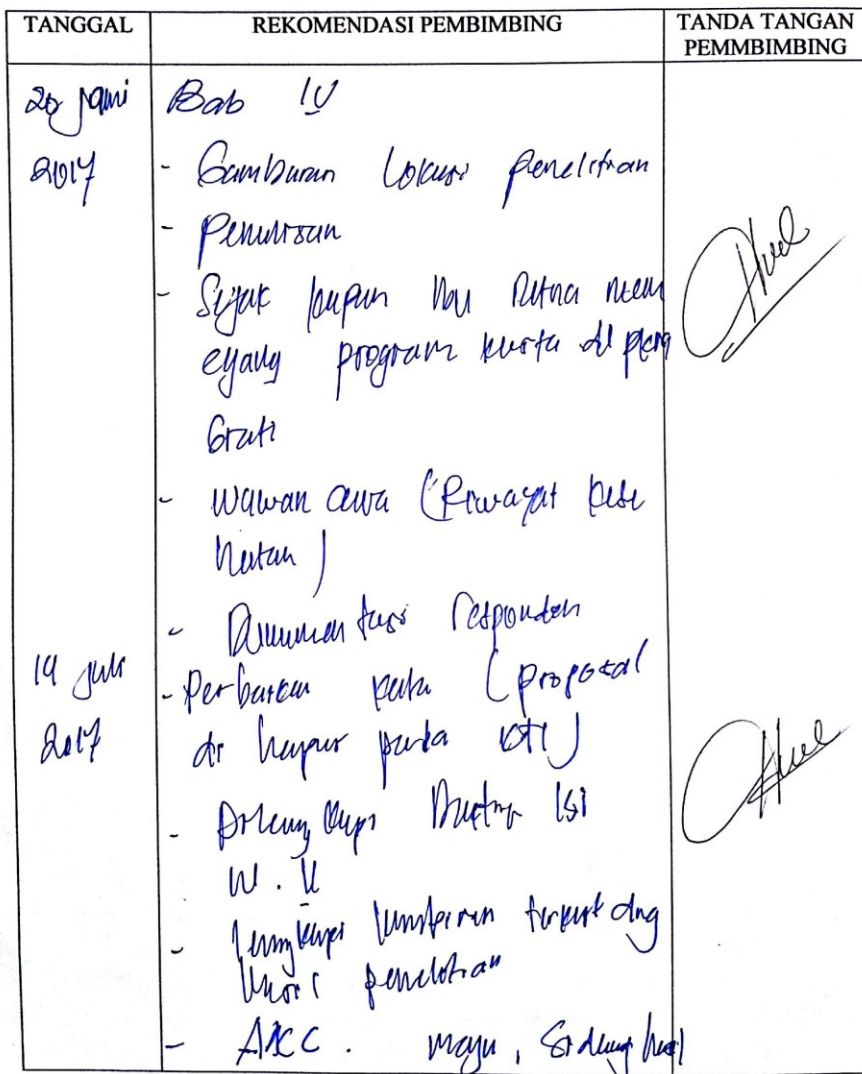 TANGGAL REKOMENDASI PEMBIMBING TANDA TANGAN
PEMMBIMBING
20 Juni Bab IV
2017 - Gambaran Lokasi penelitian
- Penulisan
- Sejak kapan Ibu Ratna mem
egang program kusta di pkm
Grati
- Wawan cara (Riwayat kese
hatan)
- Dokumentasi Responden
14 Juli - Perbaikan kata (proposal
2017 di hapus pada KTI)
- Dilengkapi Daftar Isi
IV . V
- lengkapi lampiran terkait dng
penelitian
- ACC . maju , Sidang hasil